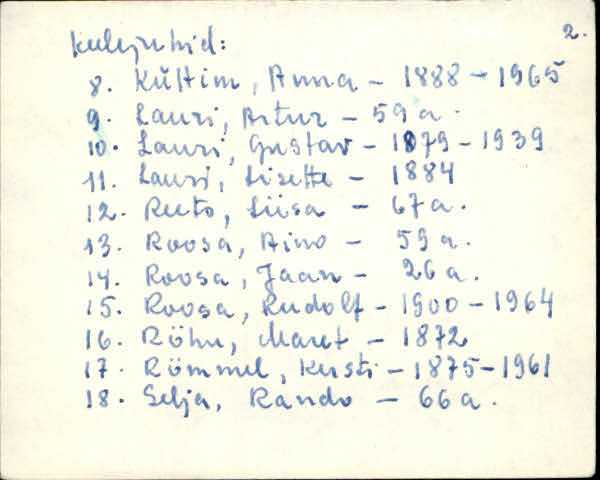 2.
Keelejuhid:
8. Kültim, Anna – 1888 – 1965
9. Lauri, Artur – 59 a.
10. Lauri, Gustav – 1879 – 1939
11. Lauri, Lisette – 1884
12. Reeto, Liisa – 67 a.
13. Roosa, Aino – 59 a.
14. Roosa, Jaan – 26 a.
15. Roosa, Rudolf – 1900 – 1964
16. Rõhu, Maret – 1872
17. Römmel, Kersti – 1875 – 1961
18. Selja, Rando – 66 a.